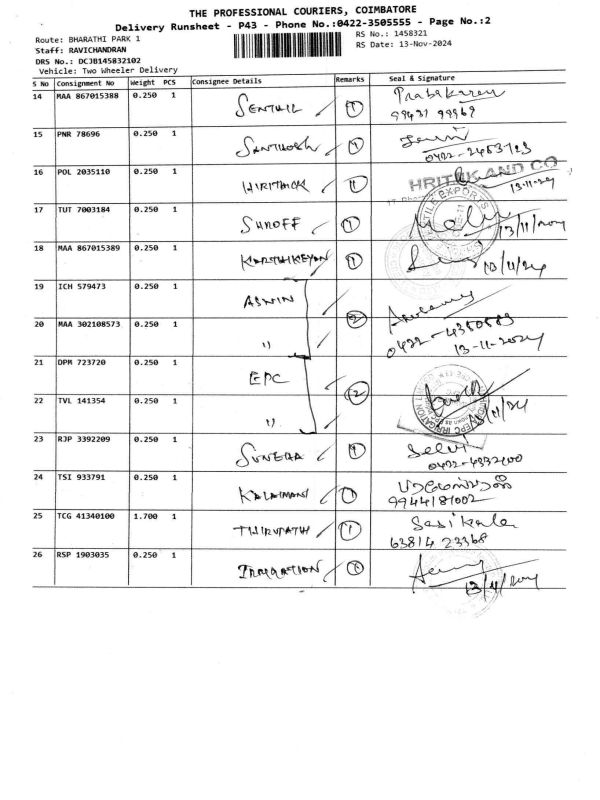 THE PROFESSIONAL COURIERS, COIMBATORE
Delivery Runsheet - P43 - Phone No.:0422-3505555 - Page No.:2
Route: BHARATHI PARK 1
RS No.: 1458321
Staff: RAVICHANDRAN
RS Date: 13-Nov-2024
DRS No.: DCJB145832102
Vehicle: Two Wheeler Delivery
S No Consignment No Weight PCS Consignee Details Remarks Seal & Signature
14 MAA 867015388 0.250 1 SENTHIL 1 Prabakaran
99431 99969
15 PNR 78696 0.250 1 SANTHOSH 1
0422-2453123
16 POL 2035110 0.250 1 HIRITHICK 1 HRITHIK AND CO
13-11-24
17 TUT 7003184 0.250 1 SHROFF 1 13/11/2024
18 MAA 867015389 0.250 1 KARTHIKEYAN 1 13/11/24
19 ICH 579473 0.250 1 ASWIN
20 MAA 302108573 0.250 1 " 2 0422-4350583
13-11-2024
21 DPM 723720 0.250 1 EPC
22 TVL 141354 0.250 1 " 2
23 RJP 3392209 0.250 1 SUNERA 1 Selvi
0422-4332400
24 TSI 933791 0.250 1 KALAIMANI 1
9944181002
25 TCG 41340100 1.700 1 THIRUPATHI 1 Sasikala
63814 23368
26 RSP 1903035 0.250 1 IRRIGATION 1
13/11/2024